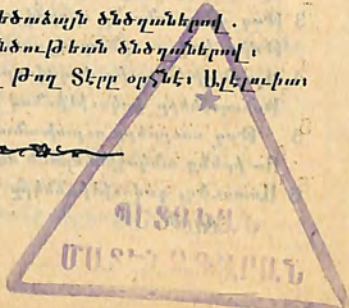 եծաձայն ծնծղաներով .
նծութեան ծնծղաներով։
Թող Տէրը օրհնէ։ Ալէլուիա։
ՊԵՏԱԿԱՆ
ՄԱՏԵՆԱԴԱՐԱՆ